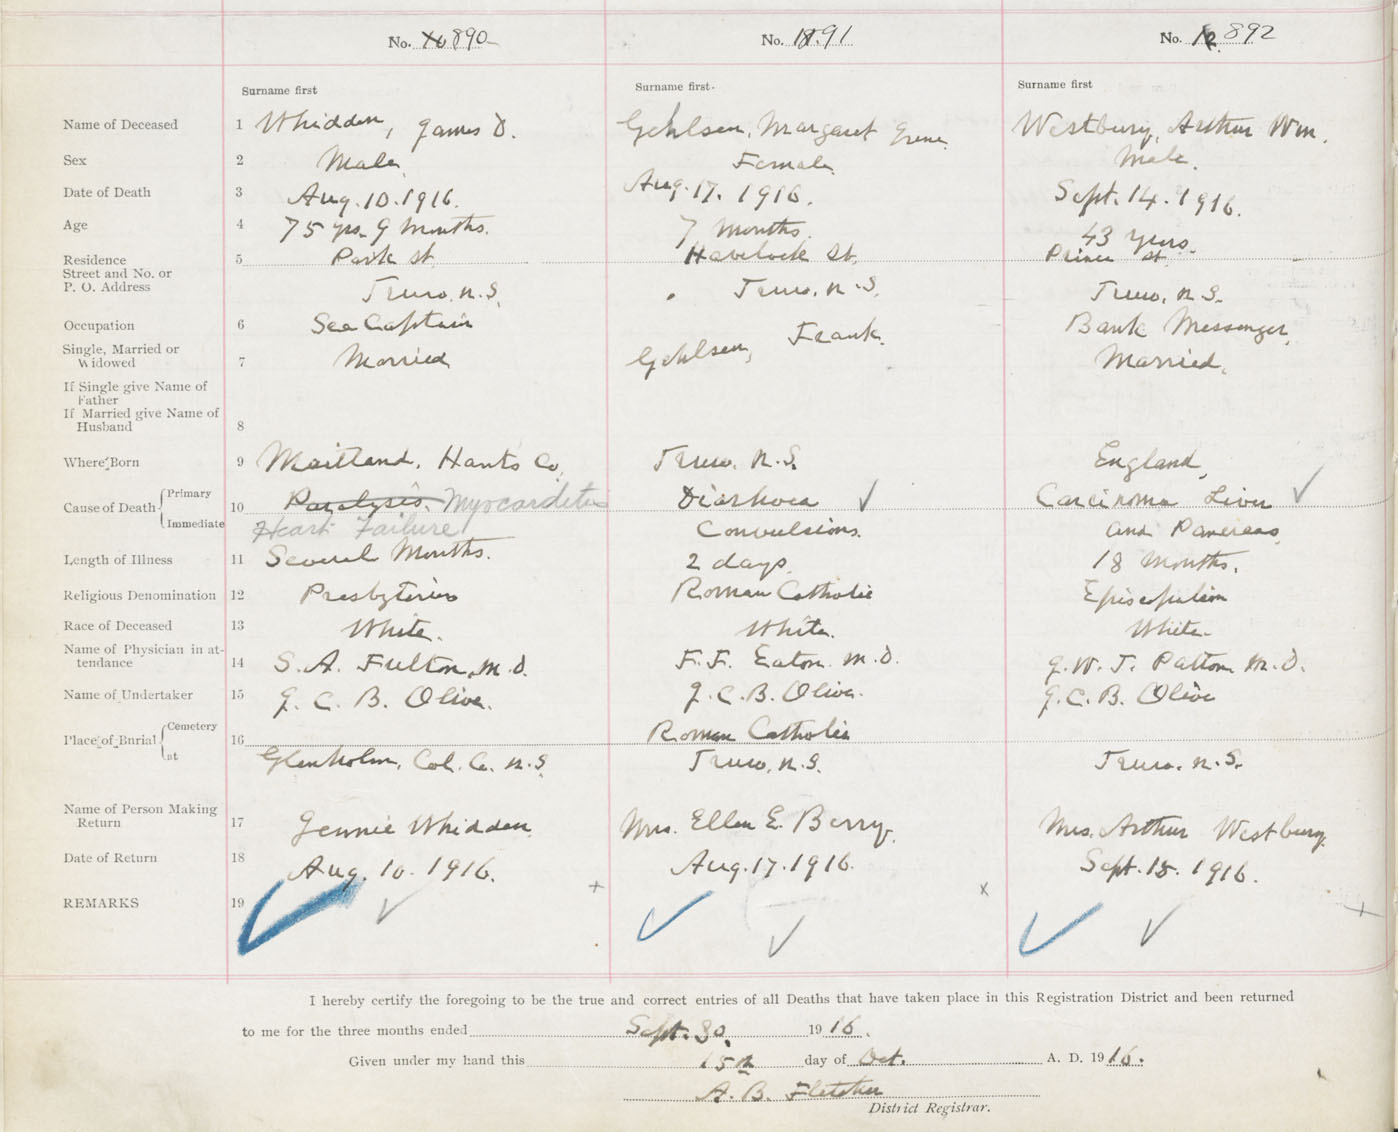 No. 10 890
No. 11. 91
No. 12 892
Surname first
Surname first.
Surname first
Name of Deceased 1 Whidden, James D. Gehlsen, Margaret Irene Westbury, Arthur Wm.
Sex 2 Male Female Male.
Date of Death 3 Aug. 10. 1916. Aug. 17. 1916. Sept. 14. 1916.
Age 4 75 yrs. 9 Months. 7 Months. 43 years.
Residence 5 Park St Havelock St. Prince St.
Street and No. or
P. O. Address Truro, N.S. Truro, N.S. Truro, N.S.
Occupation 6 Sea Captain Bank Messenger,
Single, Married or
Widowed 7 Married Gehlsen, Frank. Married.
If Single give Name of
Father
If Married give Name of
Husband 8
Where Born 9 Maitland, Hants Co. Truro, N.S. England,
Cause of Death Primary 10 Paralysis. Myocarditis Diarhoea Carcinoma Liver
Immediate Heart Failure Convulsions. and Pancreas,
Length of Illness 11 Several Months. 2 days 18 Months.
Religious Denomination 12 Presbyterian Roman Catholic Episcopalian
Race of Deceased 13 White. White. White.
Name of Physician in at-
tendance 14 S. A. Fulton, M.D. F. F. Eaton. M.D. J. W. T. Patton M.D.
Name of Undertaker 15 J. C. B. Olive. J. C. B. Olive. J. C. B. Olive
Place of Burial Cemetery 16 Roman Catholic
at Glenholm, Col. Co. N.S. Truro, N.S. Truro, N.S.
Name of Person Making
Return 17 Jennie Whidden Mrs. Ellen E. Berry, Mrs. Arthur Westbury
Date of Return 18 Aug. 10. 1916. Aug. 17. 1916. Sept. 15. 1916.
REMARKS 19
I hereby certify the foregoing to be the true and correct entries of all Deaths that have taken place in this Registration District and been returned
to me for the three months ended Sept. 30. 19 16.
Given under my hand this 15th day of Oct. A. D. 19 16.
A. B. Fletcher
District Registrar.